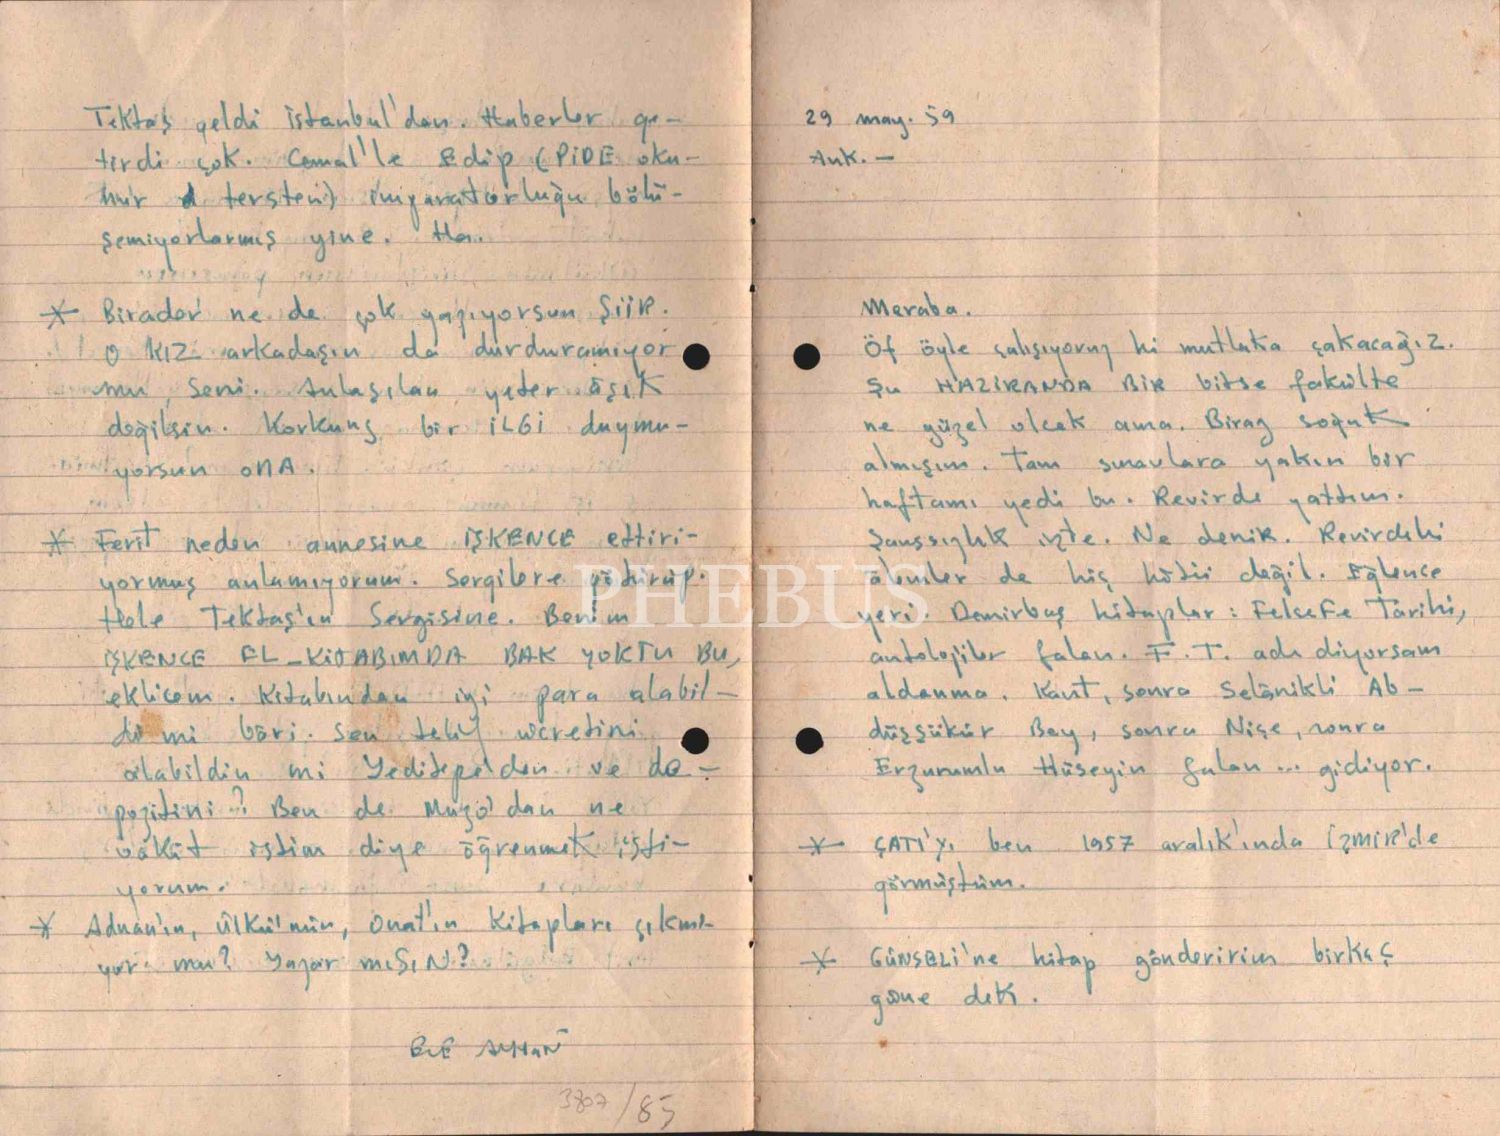 29 may. 59
Ank. —
Meraba.
Öf öyle çalışıyoruz ki mutlaka çakacağız.
Şu HAZİRANDA BİR bitse fakülte
ne güzel olcak ama. Biraz soğuk
almışım. Tam sınavlara yakın bir
haftamı yedi bu. Revirde yattım.
Şanssızlık işte. Ne denir. Revirdeki
âlemler de hiç kötü değil. Eğlence
yeri. Demirbaş kitaplar: Felsefe Tarihi,
antolojiler falan. F. T. adı diyorsam
aldanma. Kant, sonra Selânikli Ab-
düşşükür Bey, sonra Nişe, sonra
Erzurumlu Hüseyin falan ... gidiyor.
* ÇATI'yı ben 1957 aralık'ında İZMİR'de
görmüştüm.
* GÜNSELİ'ne kitap gönderirim birkaç
güne dek.
Tektaş geldi İstanbul'dan. Haberler ge-
tirdi çok. Cemal'le Edip (PİDE oku-
nur tersten) imparatorluğu bölü-
şemiyorlarmış yine. Ha.
* Birader ne de çok yazıyorsun ŞİİR.
O KIZ arkadaşın da durduramıyor
mu seni. Anlaşılan yeter âşık
değilsin. Korkunç bir İLGİ duymu-
yorsun ONA.
* Ferit neden annesine İŞKENCE ettiri-
yormuş anlamıyorum. Sergilere götürüp.
Hele Tektaş'ın Sergisine. Benim
İŞKENCE EL-KİTABIMDA BAK YOKTU BU,
eklicem. Kitabından iyi para alabil-
di mi bâri. Sen telif ücretini
alabildin mi Yeditepe'den ve de-
pozitini? Ben de Muzo'dan ne
vâkit istim diye öğrenmek isti-
yorum.
* Adnan'ın, Ülkü'nün, Onat'ın Kitapları çıkmı-
yor mu? Yazar mısın?
ECE AYHAN
3807/85
PHEBUS